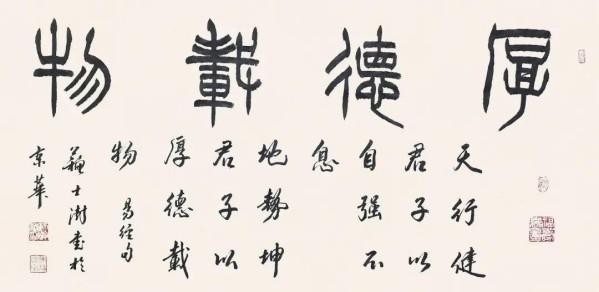 厚德載物
天行健
君子以
自强不
息
地勢坤
君子以
厚德載
物
易经句
苏士澍书於
京華